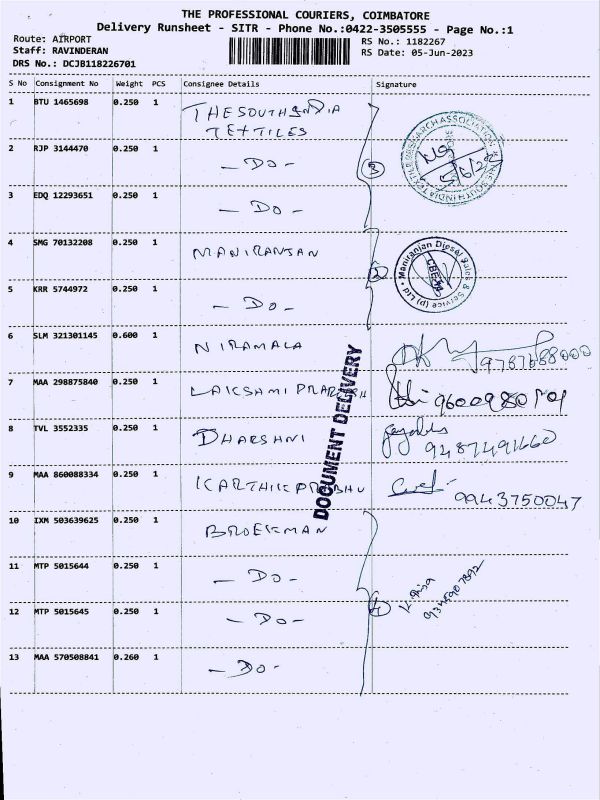 THE PROFESSIONAL COURIERS, COIMBATORE
Delivery Runsheet - SITR - Phone No.:0422-3505555 - Page No.:1
Route: AIRPORT
RS No.: 1182267
Staff: RAVINDERAN
RS Date: 05-Jun-2023
DRS No.: DCJB118226701
S No Consignment No Weight PCS Consignee Details Signature
1 BTU 1465698 0.250 1 THESOUTHINDIA
TEXTILES
2 RJP 3144470 0.250 1 - DO -
3 EDQ 12293651 0.250 1 - DO -
3
4 SMG 70132208 0.250 1 MANIRANJAN
5 KRR 5744972 0.250 1 - DO -
2
Maniranjan Diesel Sales & Service (p) Ltd
CBE
6 SLM 321301145 0.600 1 NIRAMALA 9787688000
7 MAA 298875840 0.250 1 LAKSHMI PRAKASH
8 TVL 3552335 0.250 1 DHARSHNI 9487491660
9 MAA 860088334 0.250 1 KARTHIK PRABHU 9943750047
DOCUMENT DELIVERY
10 IXM 503639625 0.250 1 BROEKMAN
11 MTP 5015644 0.250 1 - DO -
12 MTP 5015645 0.250 1 - DO -
4
13 MAA 570508841 0.260 1 - DO -